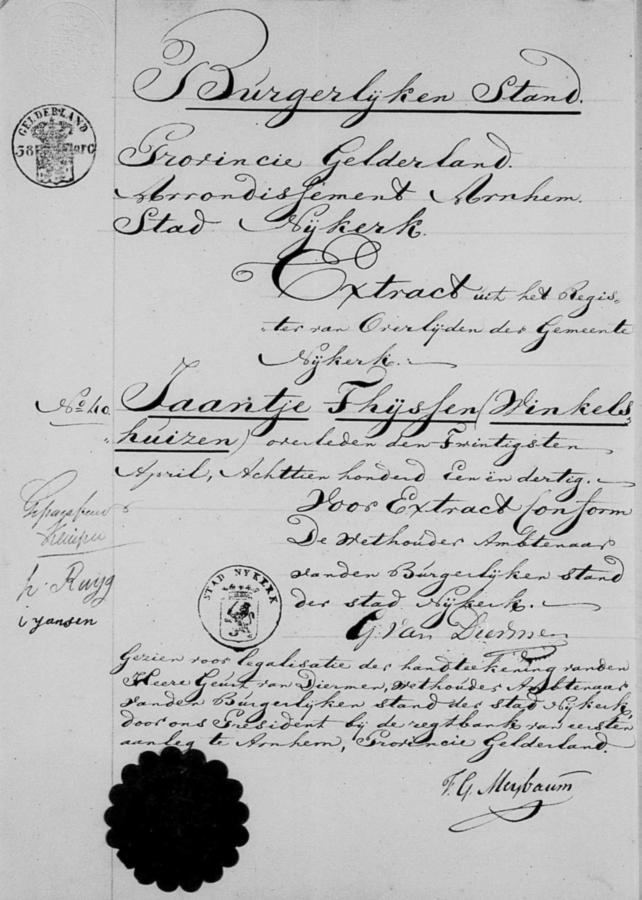 Burgerlyken Stand.
GELDERLAND
38
Provincie Gelderland.
Arrondissement Arnhem.
Stad Nykerk.
Extract uit het Regis-
ter van Overlyden der Gemeente
Nykerk.
No 40.
Jaantje Thyssen (Winkels-
huizen) overleden den Twintigsten
April, Achttien honderd Een en dertig.
Voor Extract Conform
De Wethouder Ambtenaar
van den Burgerlyken stand
der stad Nykerk.
G. van Diermen
h. Ruijg
i jansen
STAD NYKERK
Gezien voor legalisatie der handteekening van den
Heere Geurt van Diermen, Wethouder Ambtenaar
van den Burgerlyken stand der stad Nykerk,
door ons President bij de regtbank van eersten
aanleg te Arnhem, Provincie Gelderland.
F. G. Meybaum